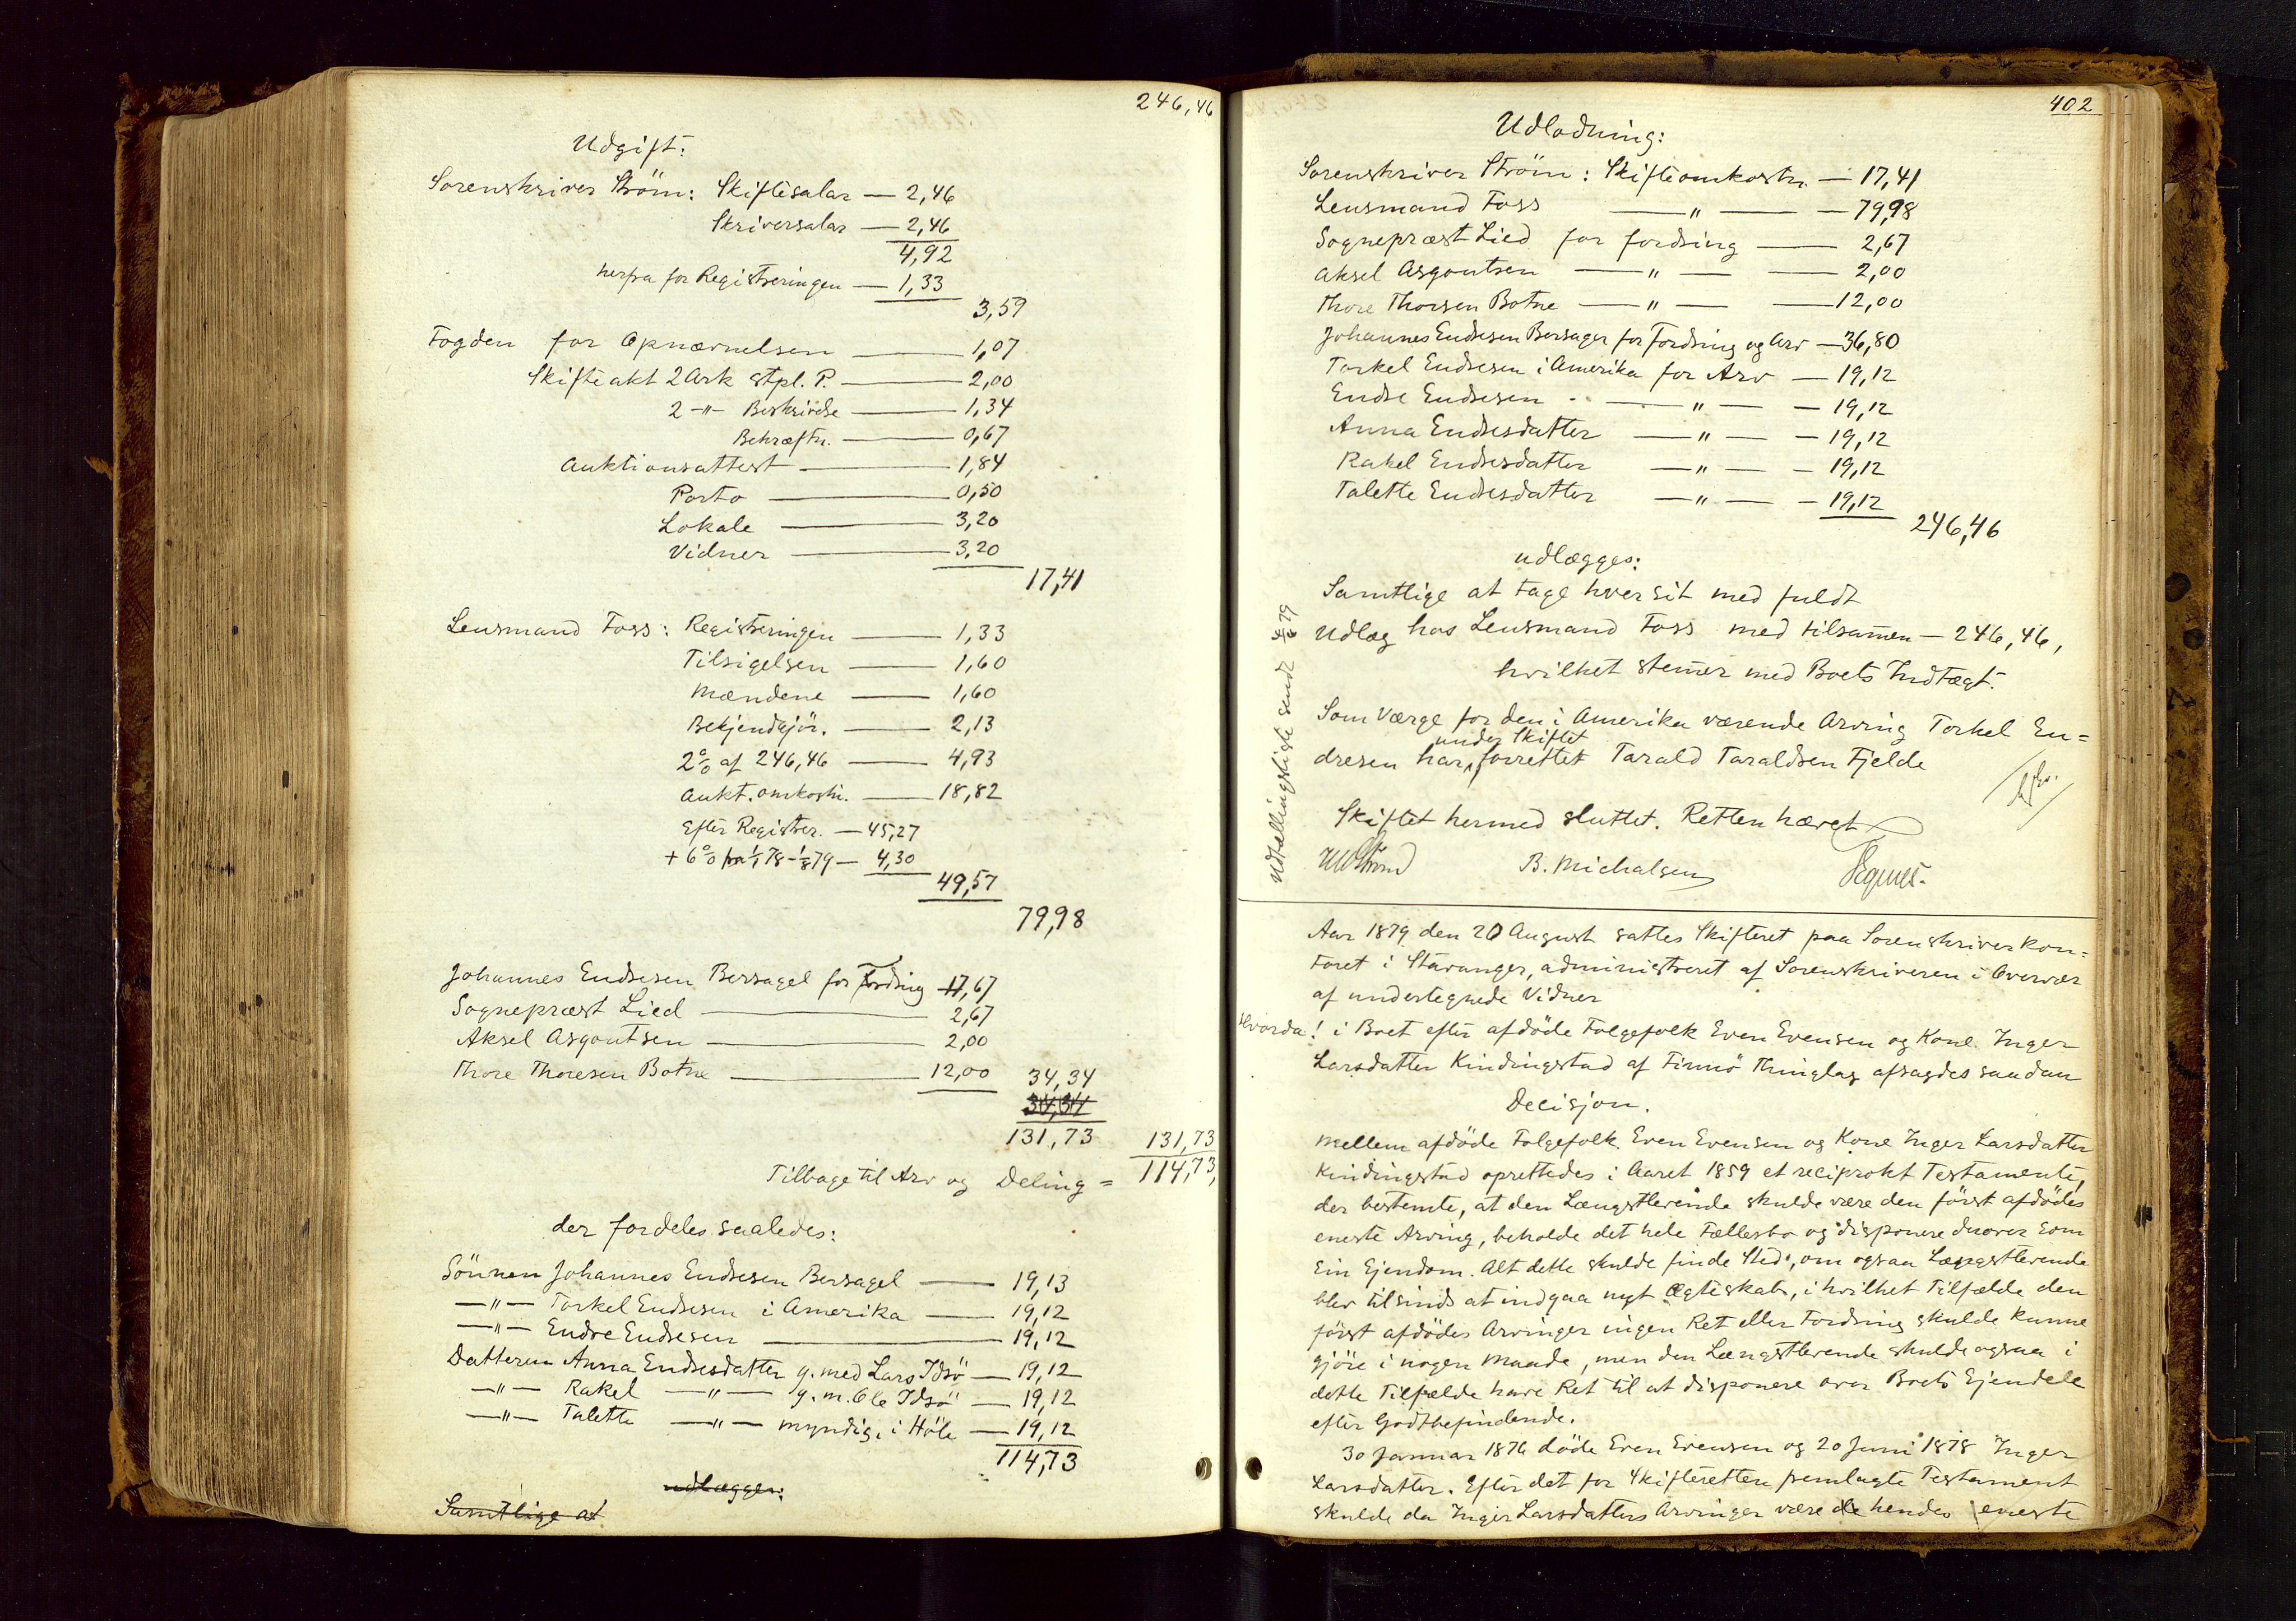 246,46
Udgift:
Sorenskriver Ström: Skiftesalar — 2,46
Skriversalar — 2,46
4,92
herfra for Registreringen — 1,33
3,59
Fogden for Opnævnelsen — 1,07
Skifteakt 2 Ark stpl. P. — 2,00
2 -"- Beskrivelse — 1,34
Bekræftn. — 0,67
Auktionsattest — 1,84
Porto — 0,50
Lokale — 3,20
Vidner — 3,20
17,41
Lensmand Foss: Registreringen — 1,33
Tilsigelsen — 1,60
Mændene — 1,60
Bekjendtgjör. — 2,13
2% af 246,46 — 4,93
Aukt. omkostn. — 18,82
Efter Registrer. — 45,27
+ 6% fra 1/1 78 - 1/8 79 — 4,30
49,57
79,98
Johannes Endresen Bersagel for Fordring 17,67
Sognepræst Lied — 2,67
Aksel Asgoutsen — 2,00
Thore Thoresen Botne — 12,00 34,34
34,34
131,73 131,73
Tilbage til Arv og Deling = 114,73,
der fordeles saaledes:
Sönnen Johannes Endresen Bersagel — 19,13
—"— Torkel Endresen i Amerika — 19,12
—"— Endre Endresen — 19,12
Datteren Anna Endresdatter g. med Lars Idsö — 19,12
—"— Rakel —"— g. m. Ole Idsö — 19,12
—"— Talette —"— myndig, i Höle — 19,12
114,73
udlægges:
Samtlige at
402
Udlodning:
Sorenskriver Ström: Skifteomkostn. — 17,41
Lensmand Foss —"— — 79,98
Sognepræst Lied for fordring — 2,67
Aksel Asgoutsen —"— — 2,00
Thore Thorsen Botne —"— — 12,00
Johannes Endresen Bersagel for Fordring og Arv — 36,80
Torkel Endresen i Amerika for Arv — 19,12
Endre Endresen —"— — 19,12
Anna Endresdatter —"— — 19,12
Rakel Endresdatter —"— — 19,12
Talette Endresdatter —"— — 19,12
246,46
udlægges:
Samtlige at tage hver sit med fuldt
Udlæg hos Lensmand Foss med tilsamen — 246,46,
hvilket stemer med Boets Indtægt.
Som Værge for den i Amerika værende Arving Torkel En=
under Skiftet
dresen har forrettet Tarald Taraldsen Fjelde
Skiftet hermed sluttet. Retten hævet
Ström B. Michalsen
Udtællingsliste sendt 79
Aar 1879 den 20 August sattes Skifteret paa Sorenskriverkon=
toret i Stavanger, administreret af Sorenskriveren i Overvær
af undertegnede Vidner
Hvorda! i Boet efter afdöde Folgefolk Even Evensen og Kone Inger
Larsdatter Kindingstad af Finnö Thinglag afsagdes saadan
Decisjon.
Mellem afdöde Folgefolk Even Evensen og Kone Inger Larsdatter
Kindingstad oprettedes i Aaret 1859 et reciprokt Testamente,
der bestemte, at den Længstlevende skulde være den först afdödes
eneste Arving, beholde det hele Fællesbo og disponere derover som
Ein Ejendom. Alt dette skulde finde Sted, om ogsaa Længstlevende
blev tilsinds at indgaa nyt Ægteskab, i hvilket Tilfælde den
först afdödes Arvinger ingen Ret eller Fordring skulde kunne
gjöre i nogen Maade, men den Længstlevende skulde ogsaa i
dette Tilfælde have Ret til at disponere over Boets Ejendele
efter Godtbefindende.
30 Januar 1876 döde Even Evensen og 20 Juni 1878 Inger
Larsdatter. Efter det for Skifteretten fremlagte Testament
skulde da Inger Larsdatters Arvinger være de hendes eneste